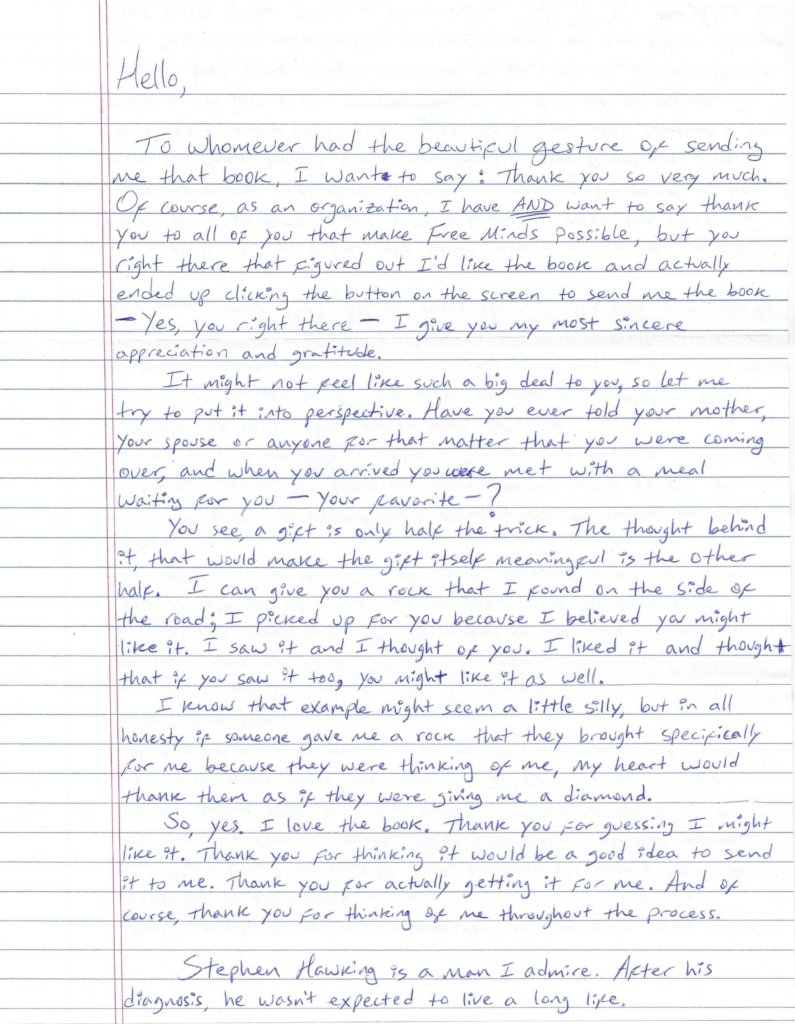 Hello,
To whomever had the beautiful gesture of sending
me that book, I want to say: Thank you so very much.
Of course, as an organization, I have AND want to say thank
you to all of you that make Free Minds possible, but you
right there that figured out I'd like the book and actually
ended up clicking the button on the screen to send me the book
— Yes, you right there — I give you my most sincere
appreciation and gratitude.
It might not feel like such a big deal to you, so let me
try to put it into perspective. Have you ever told your mother,
your spouse or anyone for that matter that you were coming
over, and when you arrived you were met with a meal
waiting for you — Your favorite —?
You see, a gift is only half the trick. The thought behind
it, that would make the gift itself meaningful is the other
half. I can give you a rock that I found on the side of
the road; I picked up for you because I believed you might
like it. I saw it and I thought of you. I liked it and thought
that if you saw it too, you might like it as well.
I know that example might seem a little silly, but in all
honesty if someone gave me a rock that they brought specifically
for me because they were thinking of me, my heart would
thank them as if they were giving me a diamond.
So, yes. I love the book. Thank you for guessing I might
like it. Thank you for thinking it would be a good idea to send
it to me. Thank you for actually getting it for me. And of
course, thank you for thinking of me throughout the process.
Stephen Hawking is a man I admire. After his
diagnosis, he wasn't expected to live a long life.